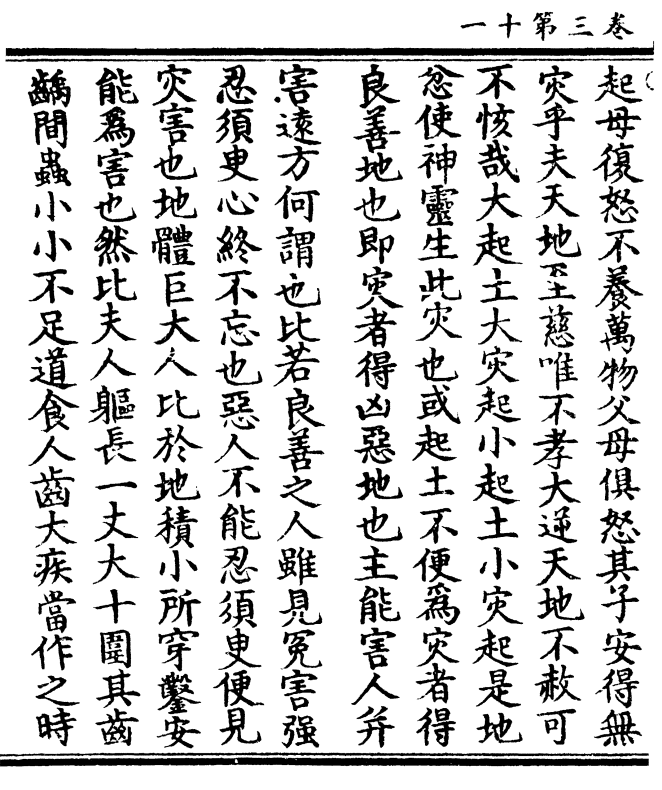 卷三第十一
起母復怒不養萬物父母俱怒其子安得無
灾乎夫天地至慈唯不孝大逆天地不赦可
不恠哉大起土大灾起小起土小灾起是地
忿使神靈生此灾也或起土不便爲灾者得
良善地也即灾者得凶惡地也主能害人并
害遠方何謂也比若良善之人雖見冤害强
忍須臾心終不忘也惡人不能忍須臾便見
灾害也地體巨大人比於地積小所穿鑿安
能爲害也然比夫人軀長一丈大十圍其齒
齲間蟲小小不足道食人齒大疾當作之時